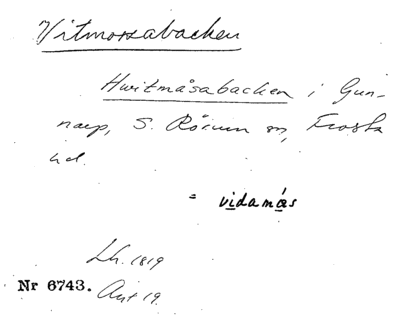 Vitmossabacken
Hwitmåsabacken i Gun-
narp, S. Rörum sn, Frosta
hd.
= vidamås
Lh. 1819
Nr 6743. Akt 19.